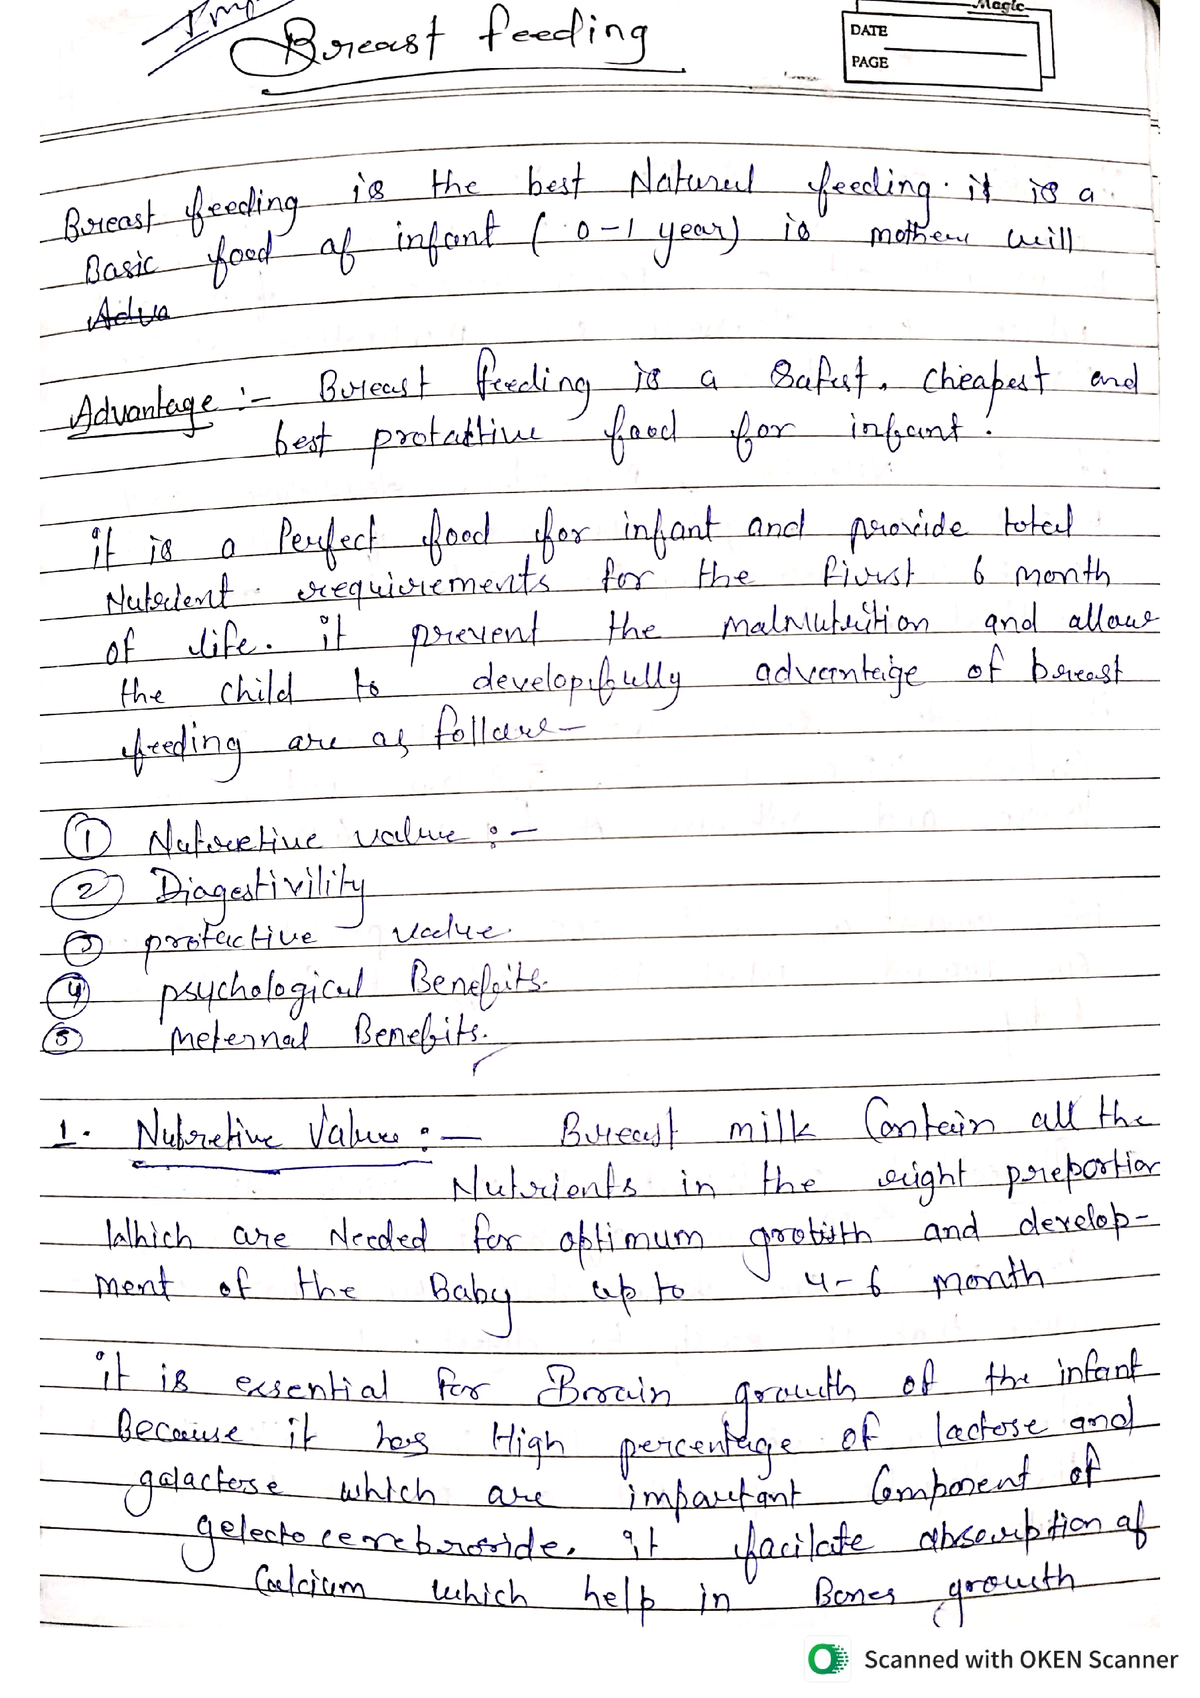 Imp
Breast feeding
Magic
DATE
PAGE
Breast feeding is the best Natural feeding. it is a
Basic food of infant (0-1 year) is mother will
Adva
Advantage :- Breast feeding is a Safest, Cheapest and
best protattive food for infant.
it is a Perfect food for infant and provide total
Nutrient requirements for the first 6 month
of life. it prevent the malnutrition and allow
the child to develop fully advantage of breast
feeding are as follow-
① Nutretive value :-
② Diagestivility
③ protactive value.
④ psychological Benefits.
⑤ meternal Benefits.
1. Nutretive Value :- Breast milk Contain all the
Nutrients in the right preportion
Which are Needed for optimum growth and develop-
ment of the Baby up to 4-6 month
it is essential for Brain growth of the infant
Because it has High percentage of lactose and
galactose which are important Component of
gelecto cerebroside. it facilate absorption of
Calcium which help in Bones growth
Scanned with OKEN Scanner